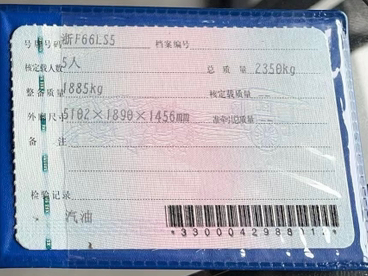 号牌号码 浙F66LS5 档案编号
核定载人数 5人 总质量 2350kg
整备质量 1885kg 核定载质量 --
外廓尺寸 5102×1890×1456mm 准牵引总质量 --
备注
检验记录
汽油
*3300042988011*